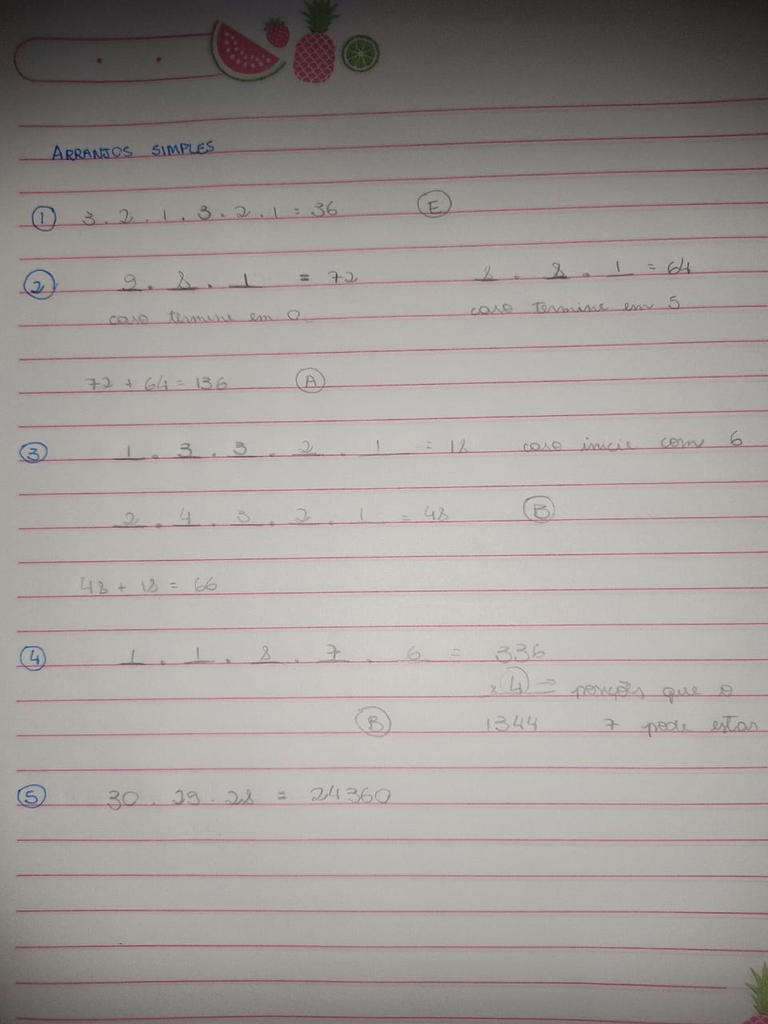 ARRANJOS SIMPLES
① 3 . 2 . 1 . 3 . 2 . 1 = 36 Ⓔ
② 9 . 8 . 1 = 72 8 . 8 . 1 = 64
caso termine em 0 caso termine em 5
72 + 64 = 136 Ⓐ
③ 1 . 3 . 3 . 2 . 1 = 18 caso inicie com 6
2 . 4 . 3 . 2 . 1 = 48 Ⓑ
48 + 18 = 66
④ 1 . 1 . 8 . 7 . 6 = 336
x ④ ⇒ posições que o
Ⓑ 1344 7 pode estar
⑤ 30 . 29 . 28 = 24360